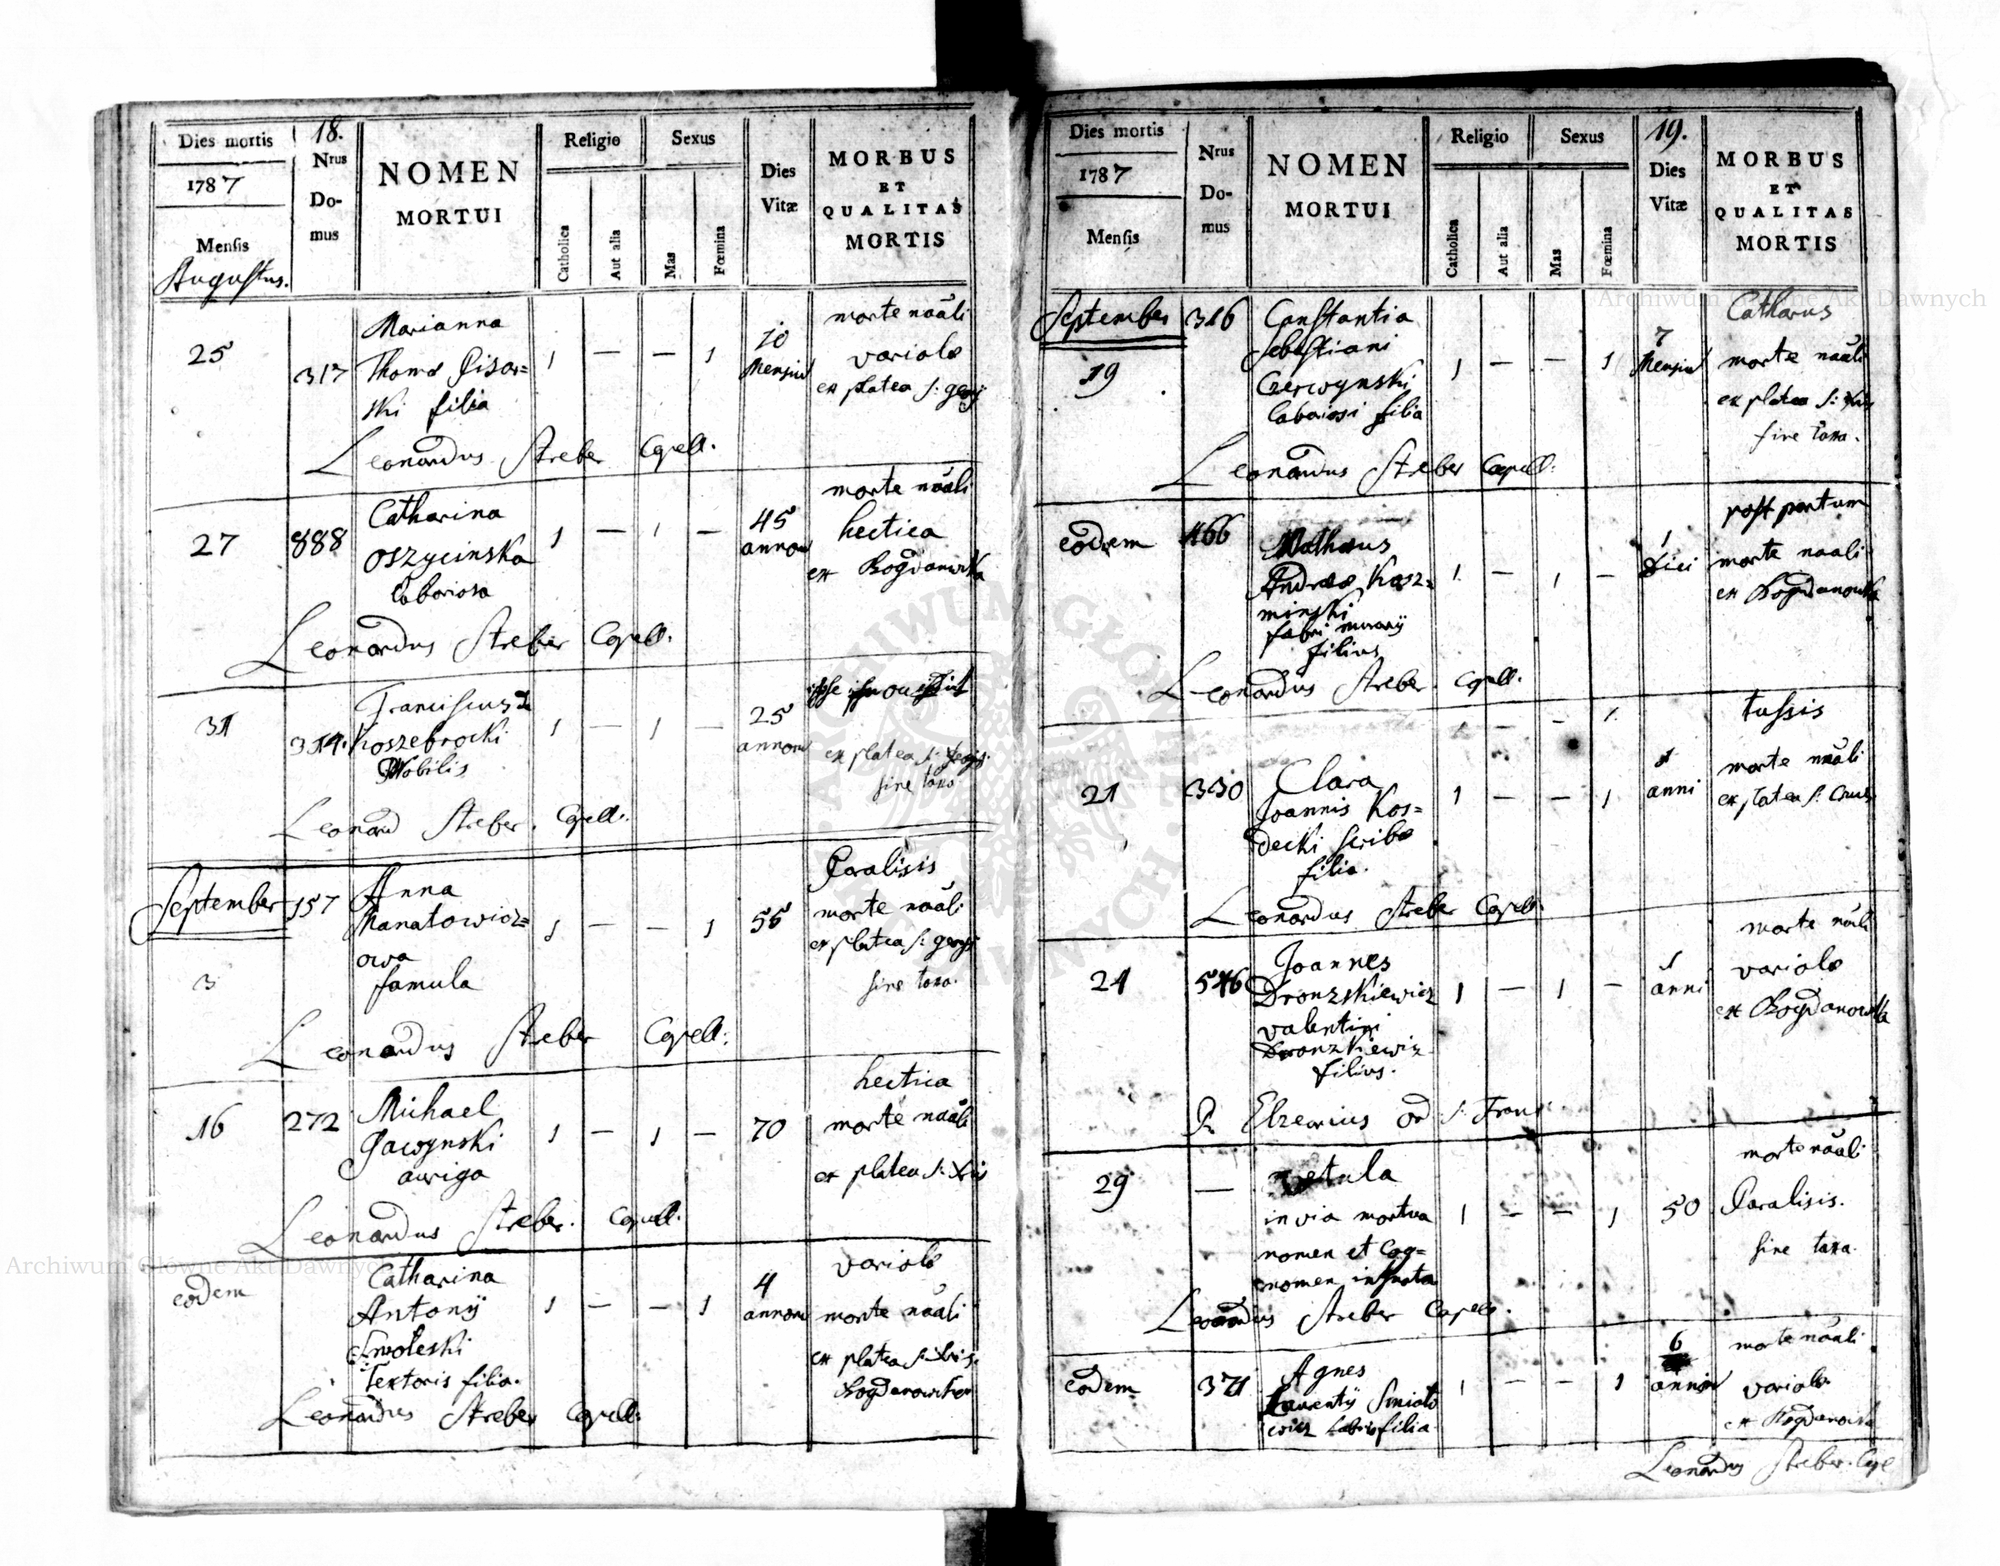 Dies mortis
1787
Mensis
Augustus.
18.
Nrus
Do-
mus
NOMEN
MORTUI
Religio
Catholica
Aut alia
Sexus
Mas
Fœmina
Dies
Vitæ
MORBUS
ET
QUALITAS
MORTIS
25
317
Marianna
Thomæ Pisar=
ski filia
1 — — 1
10
Mensium
morte nãali
variolæ
ex platea S:
Leonardus Streber Capell:
27
888
Catharina
Oszycinska
laboriosa
1 — 1 —
45
annorum
morte nãali
hectica
ex Bogdanowka
Leonardus Streber Capell:
31
314.
Franciscus de
Koszebrocki
Nobilis
1 — 1 —
25
annorum
ex platea S:
sine taxa
Leonard Streber. Capell:
September
3
157
Anna
Manatowicz=
owa
famula
1 — — 1
55
Paralisis
morte nãali
ex platea S:
sine taxa.
Leonardus Streber Capell:
16
272
Michael
Gawynski
auriga
1 — 1 —
70
hectica
morte nãali
ex platea S:
Leonardus Streber. Capell:
eodem
Catharina
Antonij
Smoleski
Textoris filia.
1 — — 1
4
annorum
variolæ
morte nãali
ex platea S:
Bogdanowka
Leonardus Streber Capell:
Dies mortis
1787
Mensis
Nrus
Do-
mus
NOMEN
MORTUI
Religio
Catholica
Aut alia
Sexus
Mas
Fœmina
19.
Dies
Vitæ
MORBUS
ET
QUALITAS
MORTIS
September
19
316
Constantia
Sebastiani
Czerwynski
laboriosi filia
1 — — 1
7
Mensium
Catharus
morte nãali
ex platea S:
sine taxa.
Leonardus Streber Capell:
eodem
466
Matheus
Andreæ Kosz=
minski
fabri murarij
filius
1. — 1 —
1
diei
post partum
morte naali
ex Bogdanowka
Leonardus Streber. Capell:
21
330
Clara
Joannis Kos=
decki scribæ
filia.
1 — — 1
1
anni
tussis
morte nãali
ex platea S: Crucis
Leonardus Streber Capell:
24
546
Joannes
Dronzkiewicz
Valentini
Dronzkiewicz
filius.
1 — 1 —
1
anni
morte nãali
variolæ
ex Bogdanowka
P. Elzearius Ord S: Franc:
29
—
vetula
in via mortua
nomen et Cog=
nomen ignota
1 — — 1
50
morte nãali
Paralisis.
sine taxa.
Leonardus Streber Capell.
eodem
371
Agnes
Laurentij
filia
1 — — 1
6
annorum
morte nãali
variolæ
ex Bogdanowka
Leonardus Streber. Capel
Archiwum Główne Akt Dawnych
Archiwum Główne Akt Dawnych
ARCHIWUM GŁÓWNE AKT DAWNYCH